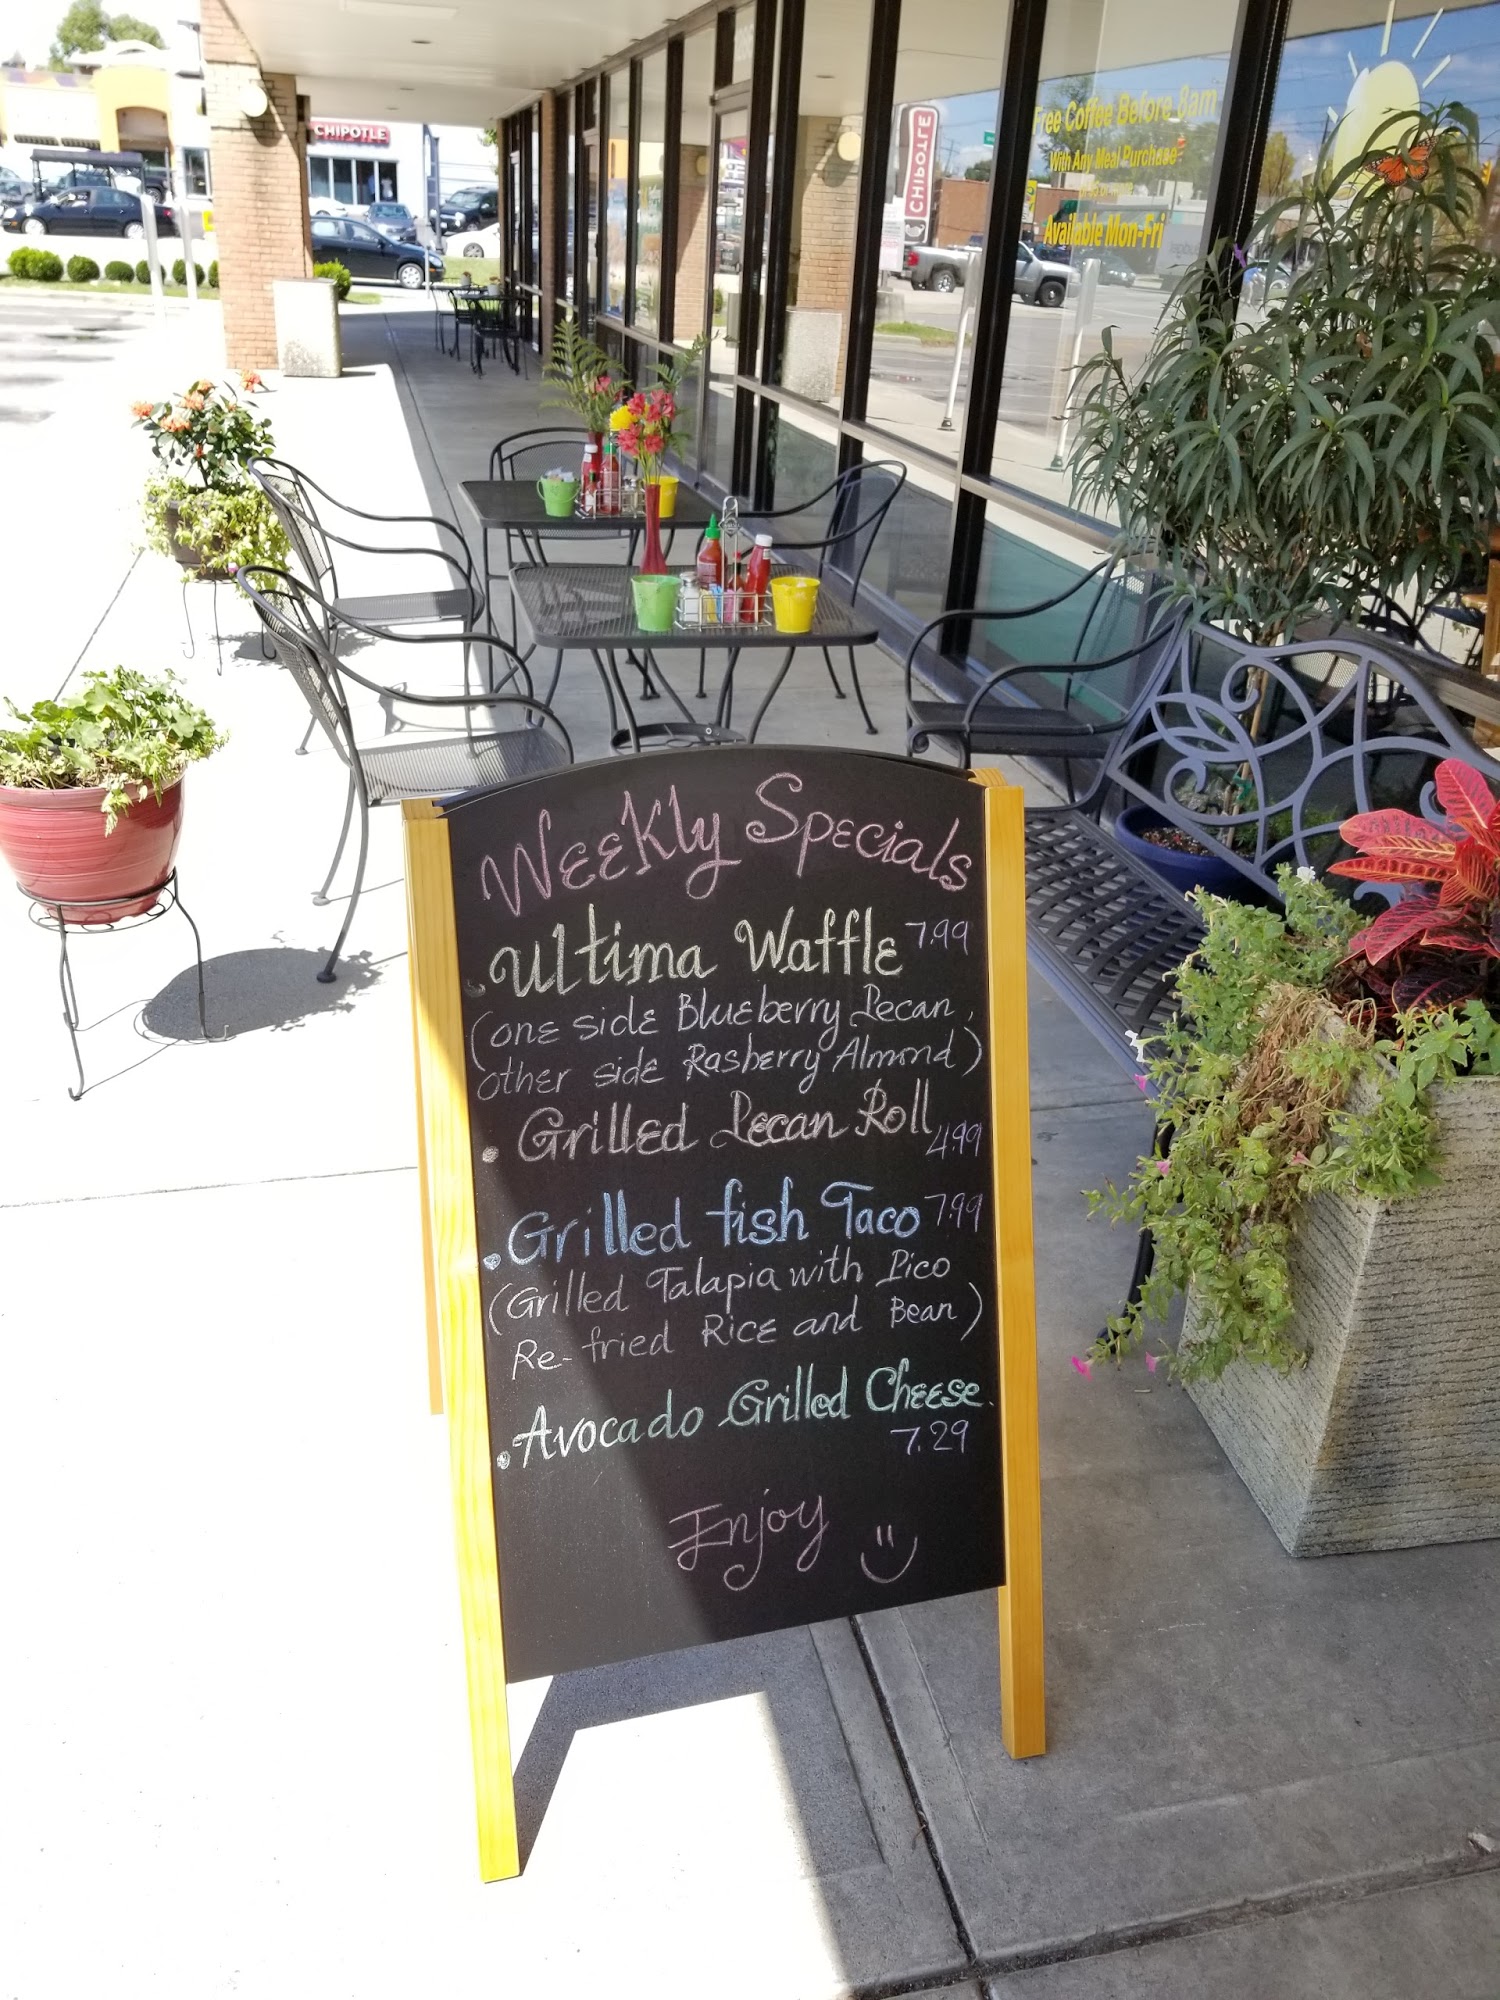 CHIPOTLE
CHIPOTLE
Free Coffee Before 8am
With Any Meal Purchase
Available Mon-Fri
Weekly Specials
. Ultima Waffle 7.99
(one side Blueberry Pecan,
other side Rasberry Almond)
. Grilled Pecan Roll
4.99
. Grilled fish Taco 7.99
(Grilled Talapia with Pico
Re-fried Rice and Bean)
. Avocado Grilled Cheese.
7.29
Enjoy